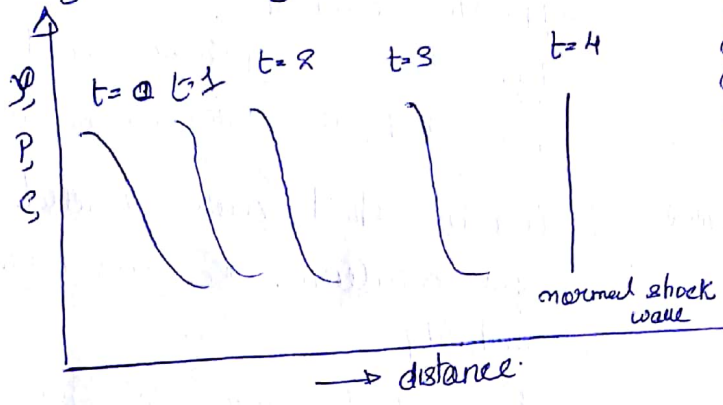 t=0 t=1 t=2 t=3 t=4
P,
normal shock
wave
→ distance.